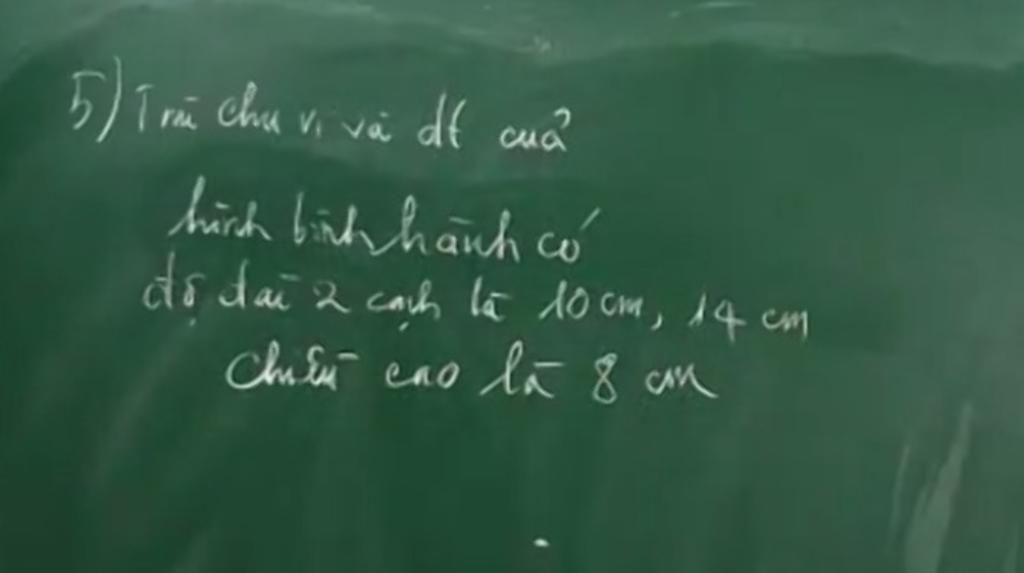 5) Tìm chu vi và dt của
hình bình hành có
độ dài 2 cạnh là 10 cm, 14 cm
chiều cao là 8 cm